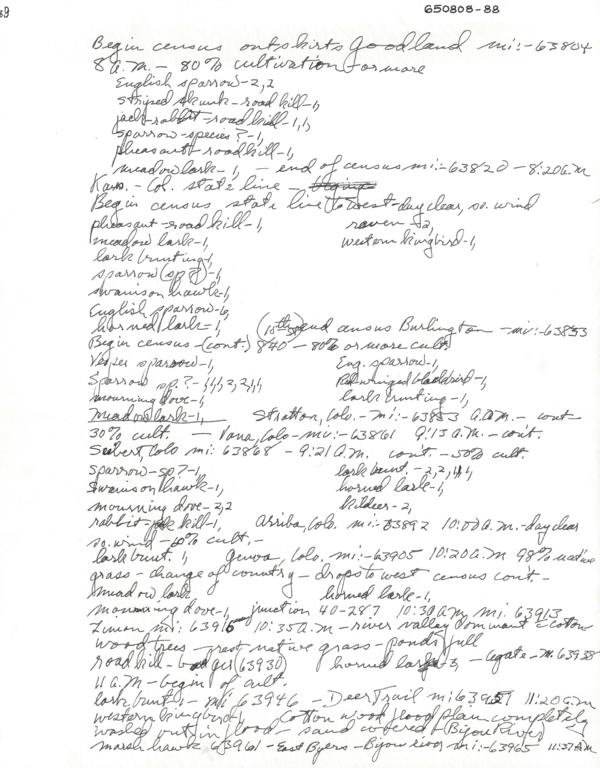 650808-88
Begin census outskirts Goodland mi:-63804
8 A.M. - 80% cultivation or more
English sparrow-2,2
striped skunk-road kill-1,
jack-rabbit-road kill-1,1,
sparrow-species?-1,
pheasant-roadkill-1,
meadow lark-1, - end of census mi:-63820 - 8:20 A.M
Kans. - Col. state line -
Begin census state line to west-day clear, so. wind
pheasant-road kill-1, raven-2,
meadow lark-1, western kingbird-1,
lark bunting-1,
sparrow (sp?)-1,
swainson hawk-1,
English sparrow-6,
horned lark-1, end census Burlington - mi:-63853
Begin census-(cont.) 840 - 80% or more cult.
Vesper sparrow-1, Eng. sparrow-1,
Sparrow sp.?-1,1,1,2,2,1,1 Red winged blackbird-1,
mourning dove-1, lark bunting-1,
Meadow lark-1, Stratton, Colo. - mi:-63853 A.M. - cont
30% cult. - Vona, Colo-mi:-63861 9:13 A.M.-cont.
Seibert, Colo mi: 63868 - 9:21 A.M. cont. - 50% cult.
sparrow-sp?-1, lark bunt.-2,2,1,1,
Swainson hawk-1, horned lark-1,
mourning dove-2,2 killdeer-2,
rabbit- kill-1, Arriba, Colo. mi:-63892 10:00 A.M.-day clear
so. wind-60% cult.-
lark bunt. 1, Genoa, Colo. mi:-63905 10:20 A.M 98% native
grass - change of country - drops to west census cont-
Meadow lark horned lark-1,
mourning dove-1, junction 40-287 10:30 A.M. mi. 63913
Limon mi: 63915 10:35 A.M - river valley dominant = cotton
wood trees - rest native grass - ponds full
road kill-badger (63930) horned lark-3, - Agate-M. 63938
11 A.M - begin of cult.
lark bunt 1 - mi: 63946 - Deer Trail mi: 63957 11:20 A.M
western kingbird-1, Cotton wood flood plain completely
washed out in flood - sand covered-(Bijou River)
marsh hawk 63961 - East Byers-Bijou river mi:-63965 11:37 A.M